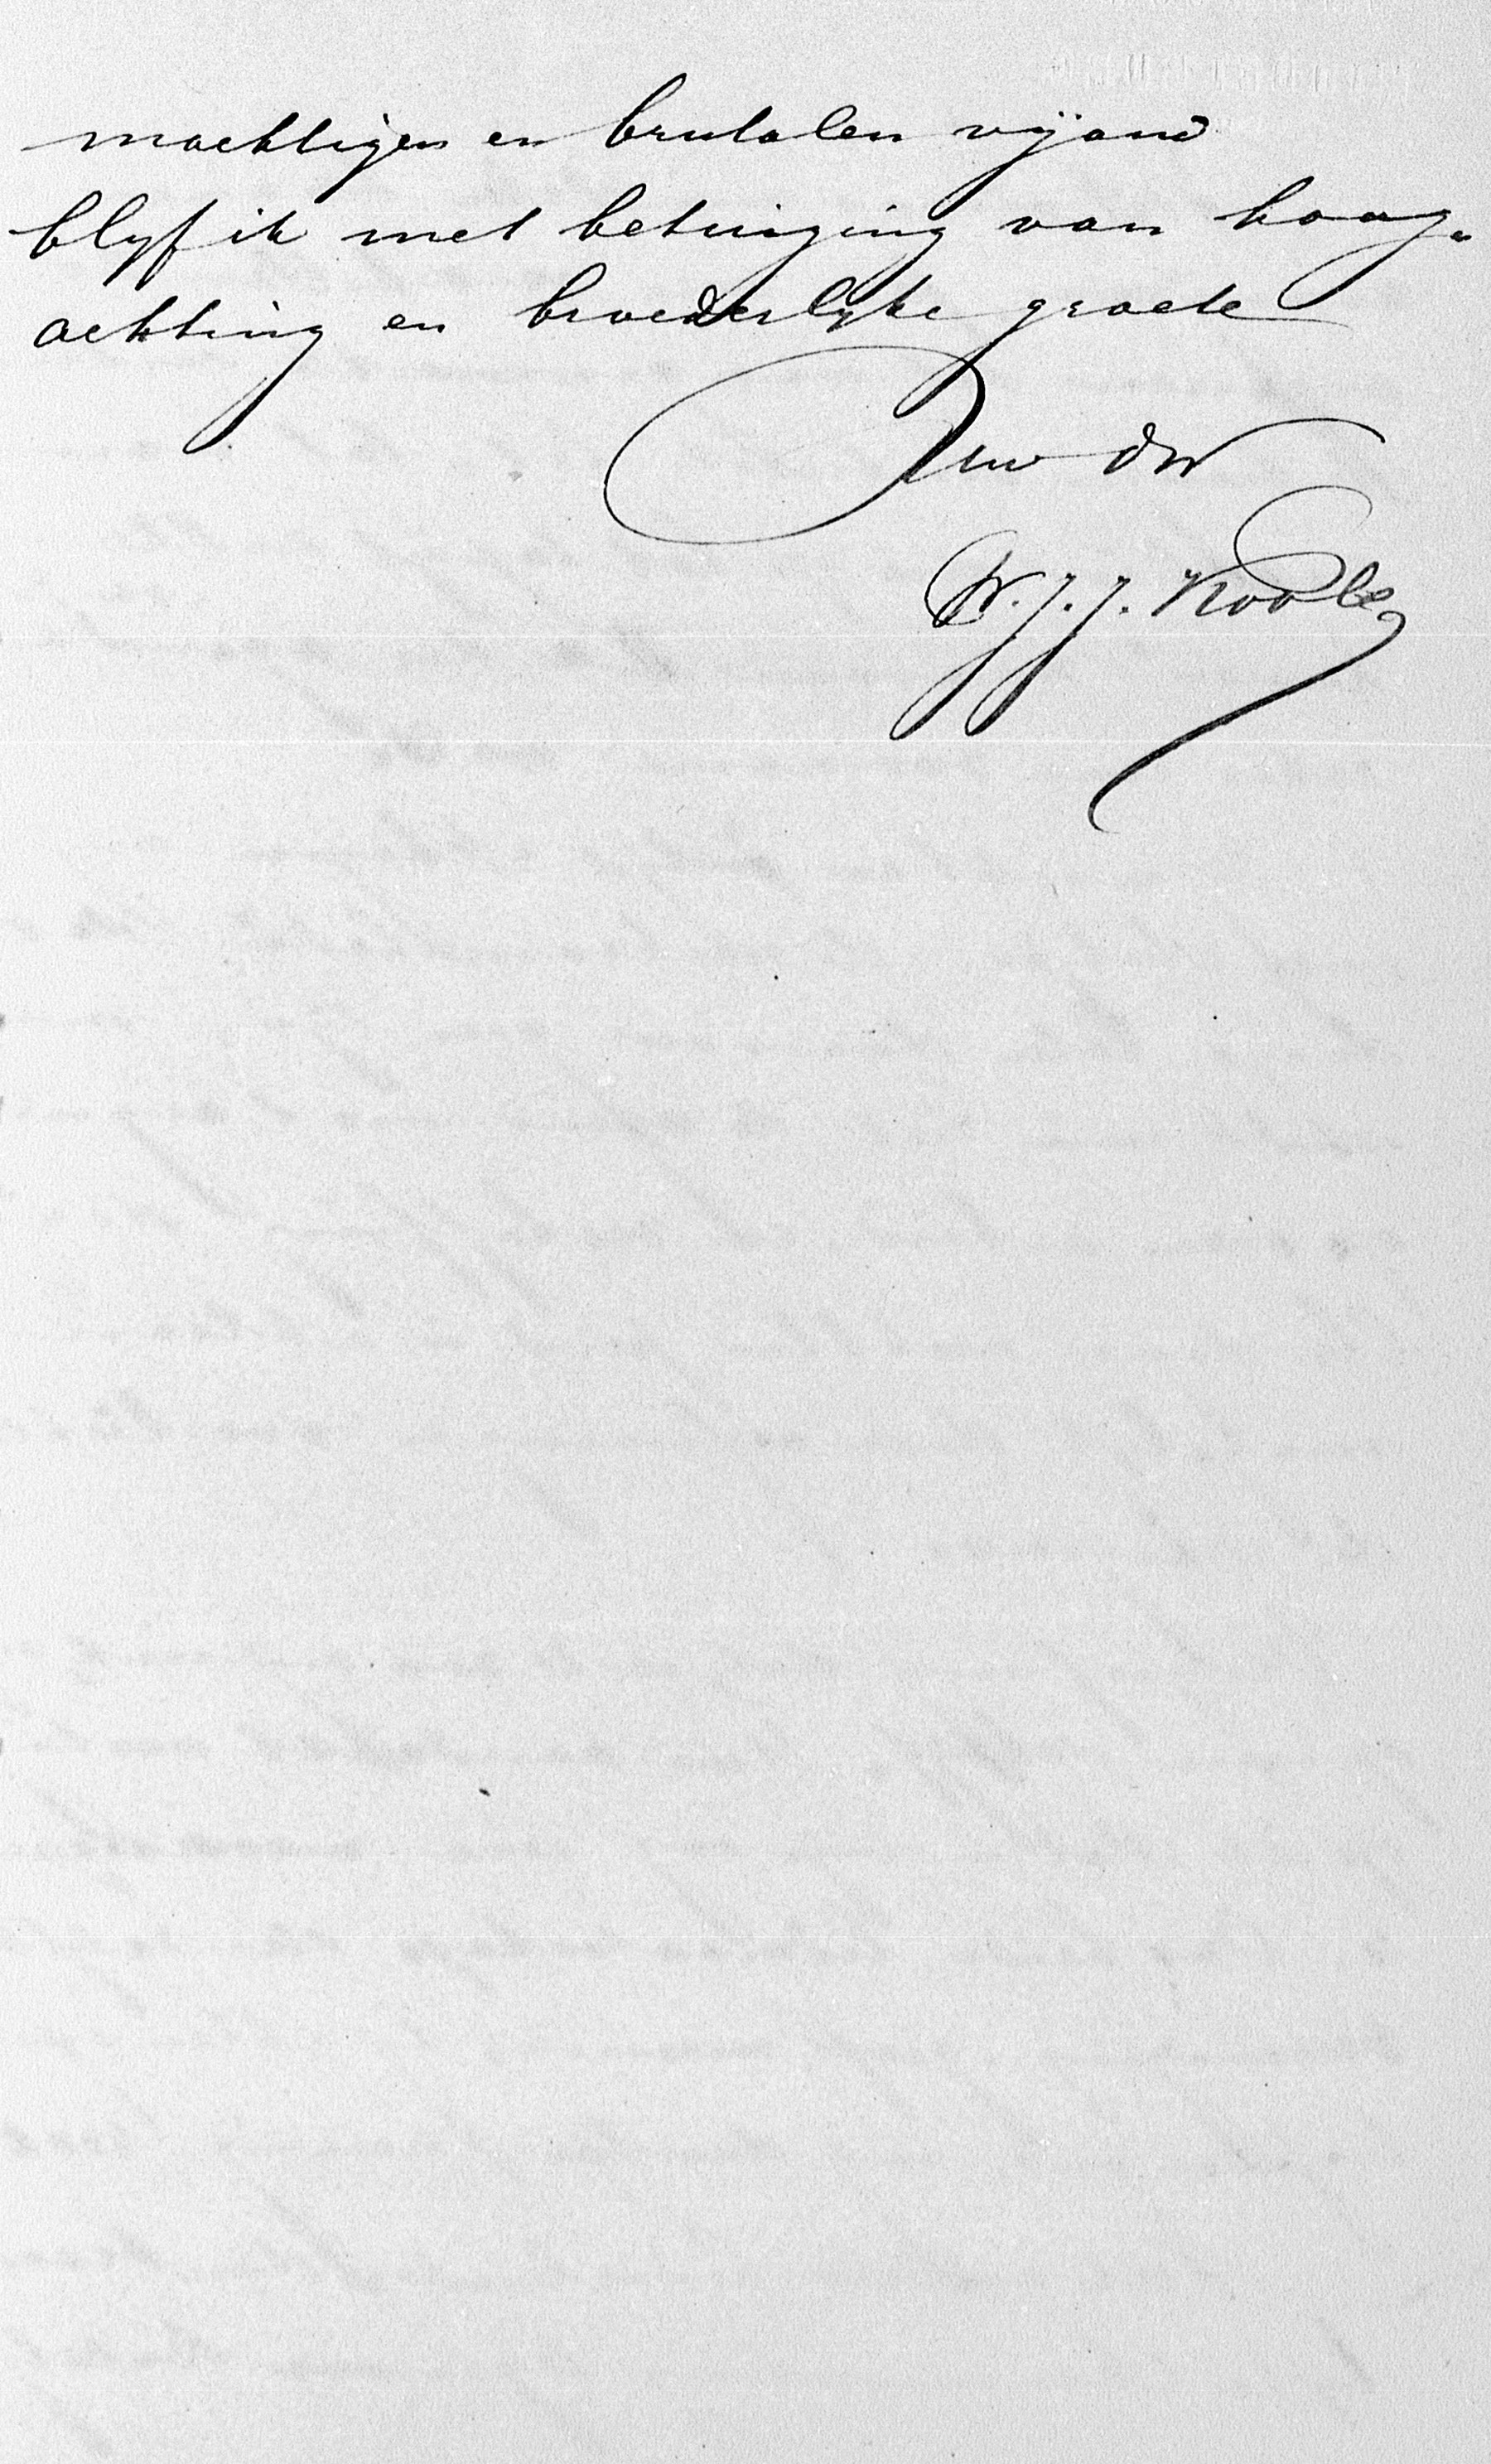 machtigen en brutalen vijand
blyf ik met betuiging van hoog-
achting en broederlyke groete
Uw dw
W. J. J. Koole